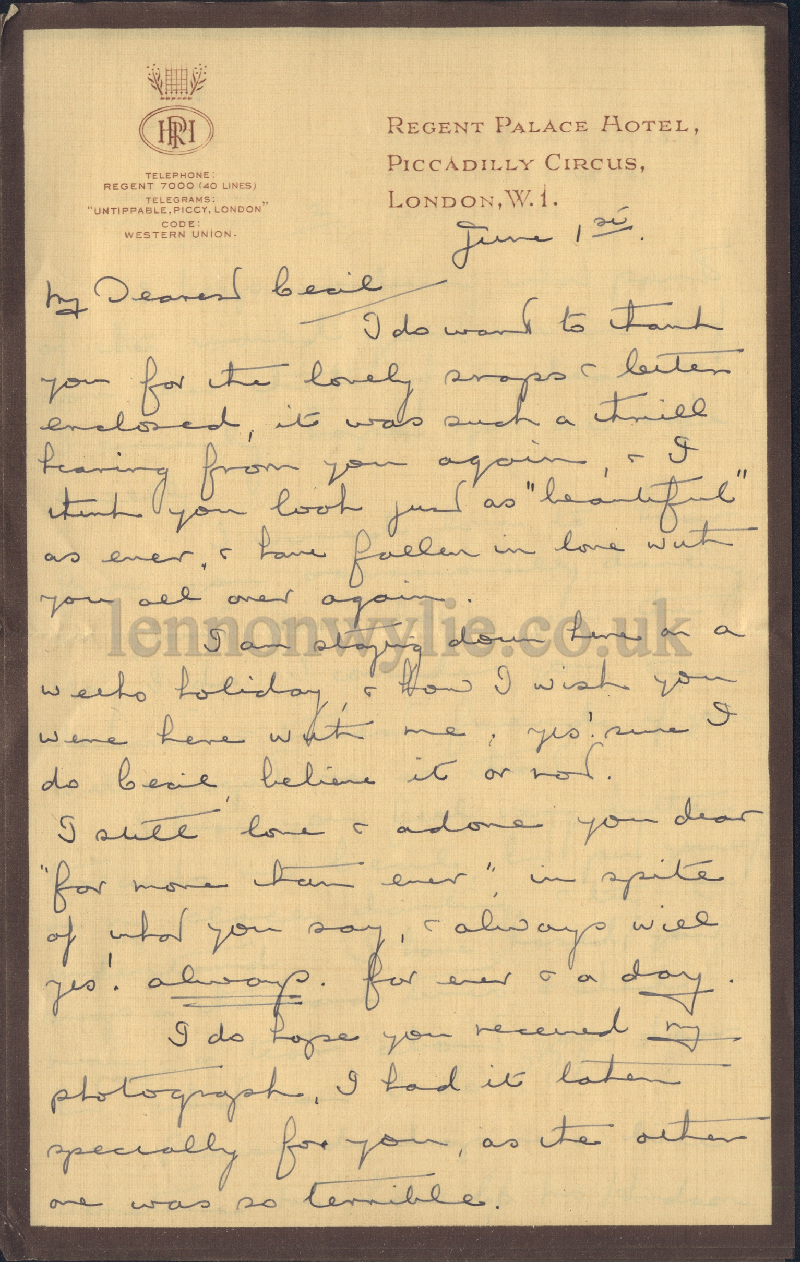 RPH
TELEPHONE:
REGENT 7000 (40 LINES)
TELEGRAMS:
"UNTIPPABLE, PICCY, LONDON"
CODE:
WESTERN UNION.
REGENT PALACE HOTEL,
PICCADILLY CIRCUS,
LONDON, W.1.
June 1st.
My Dearest Cecil
I do want to thank
you for the lovely snaps & letter
enclosed, it was such a thrill
hearing from you again, & I
think you look just as "beautiful"
as ever, & have fallen in love with
you all over again.
lennonwylie.co.uk
I am staying down here on a
weeks holiday, & how I wish you
were here with me, yes! sure I
do Cecil, believe it or not.
I still love & adore you dear
"far more than ever", in spite
of what you say, & always will
yes! always. for ever & a day.
I do hope you received my
photograph, I had it taken
specially for you, as the other
one was so terrible.